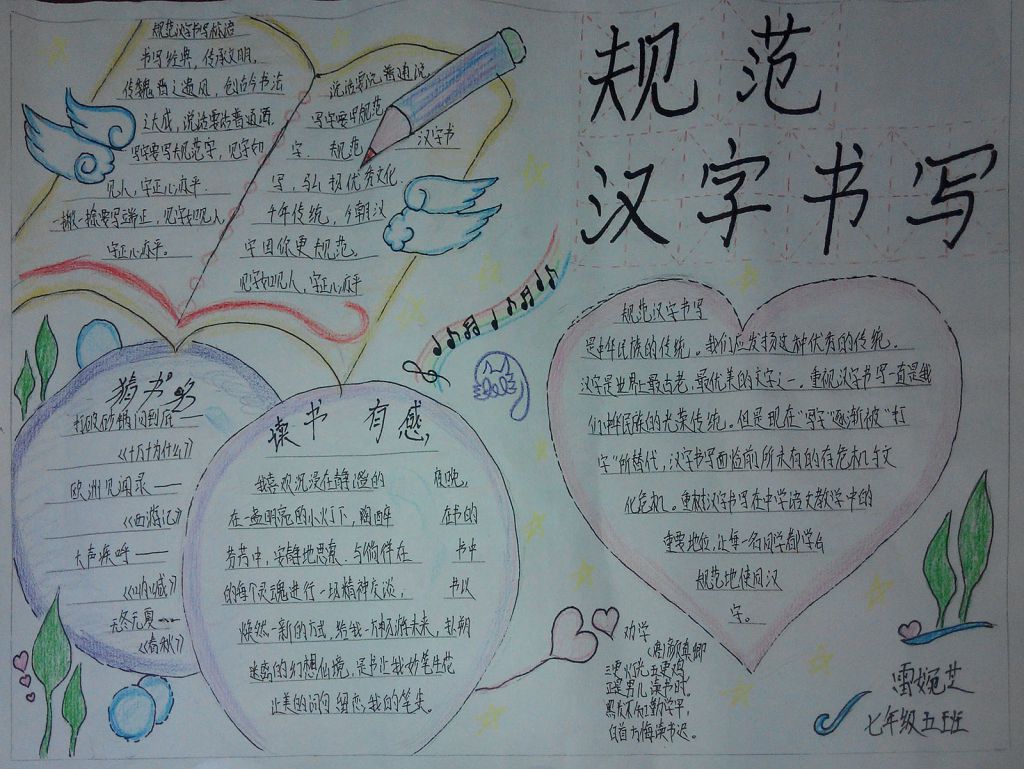 规范
汉字书写
规范汉字书写标语
书写经典，传承文明。
传魏晋之遗风，创古今书法
之大成，说话要说普通话
写字要写规范字，见字如
见人，字正心亦平
一撇一捺要写端正，见字如见人
字正心亦平。
说话要说普通话
写字要写规范
字．规范 汉字书
写，弘扬优秀文化
千年传统，今朝汉
字因你更规范。
见字如见人，字正心亦平
猜书名
打破砂锅问到底
《十万个为什么》
欧洲见闻录——
《西游记》
大声疾呼——
《呐喊》
无冬无夏——
《春秋》
读书有感
我喜欢沉浸在静谧的夜晚，
在一盏明亮的小灯下，陶醉在书的
芬芳中，安静地思索．与徜徉在书中
的每个灵魂进行一场精神交谈，书以
焕然一新的方式，给我一
迷惑的幻想仙境，是书让我妙笔生花
让美的词句留恋我的笔尖。
规范汉字书写
是中华民族的传统。我们应发扬这种优秀的传统．
汉字是世界上最古老、最优美的文字之一．重视汉字书写一直是我
们中华民族的光荣传统。但是现在"写字"逐渐被"打
字"所替代，汉字书写面临前所未有的存危机与文
化危机。重树汉字书写在中学语文教学中的
重要地位，让每一名同学都学会
规范地使用汉
字。
劝学
（唐）颜真卿
三更灯火五更鸡
正是男儿读书时，
黑发不知勤学早，
白首方悔读书迟。
雷婉芝
七年级五班